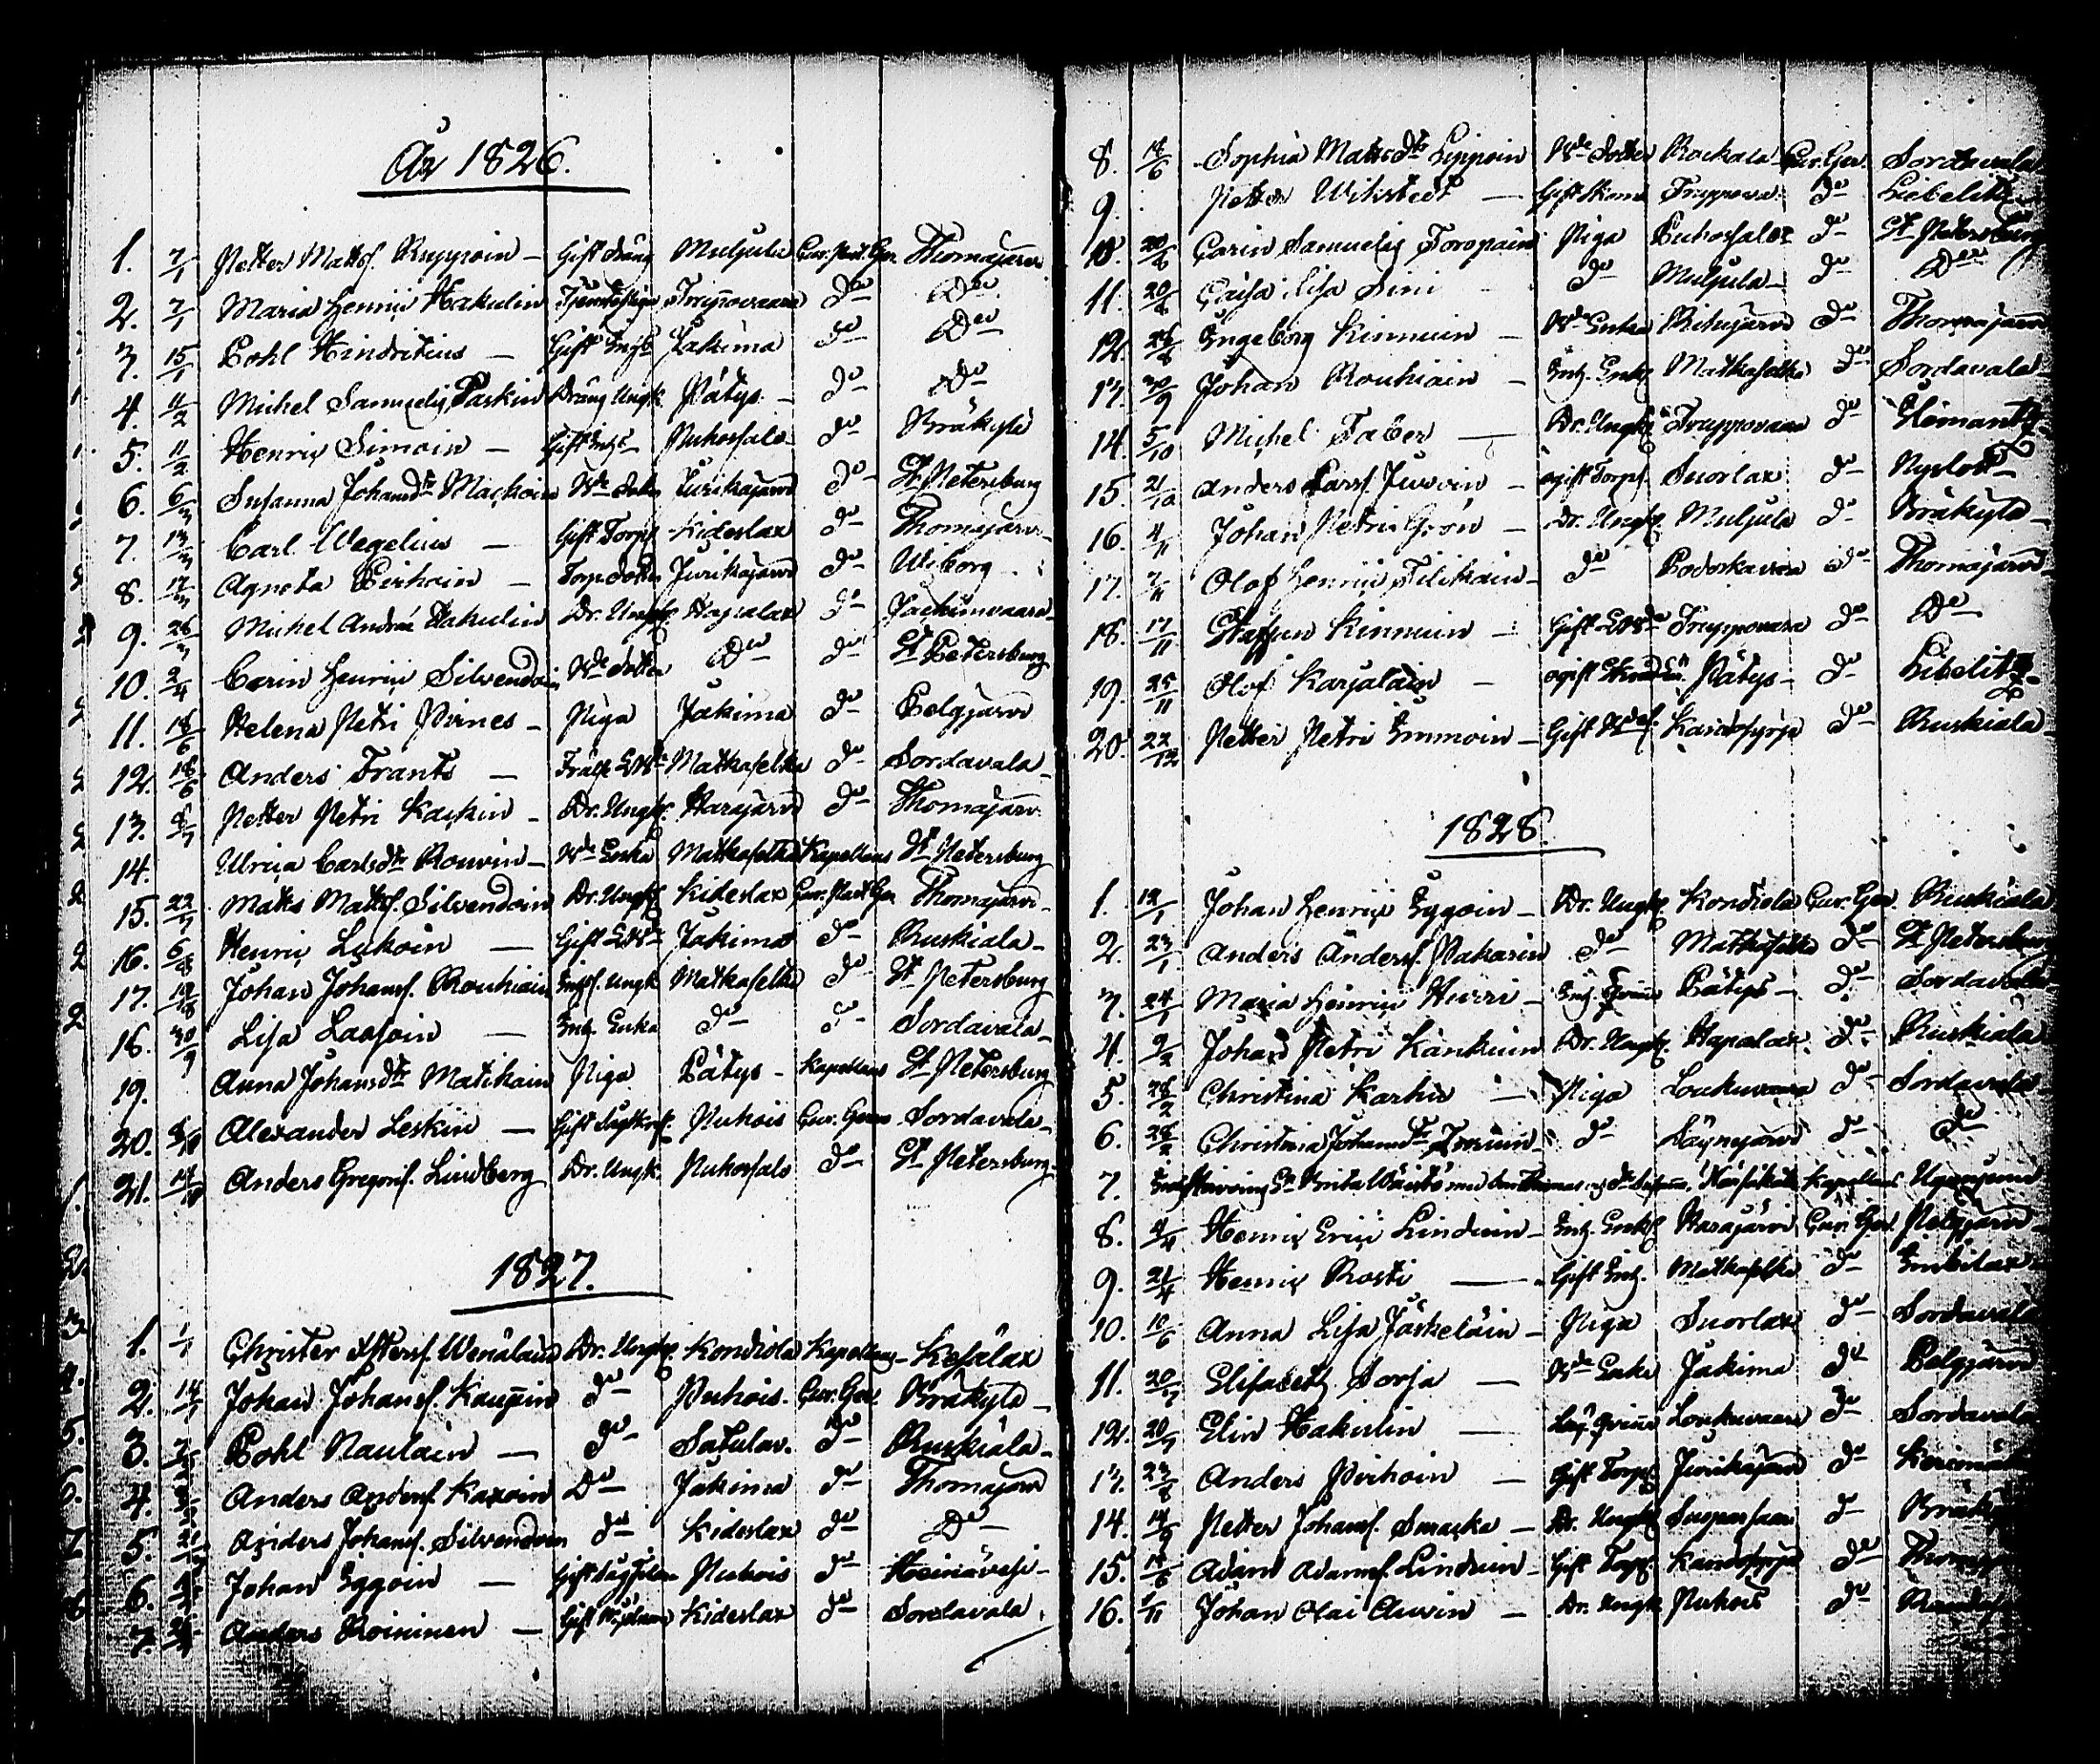 År 1826.
1. 7/1 Petter Mattsf. Ruppoin – Gift dräng Muljula Cur. Past. Ger. Thomajärvi
2. 7/1 Maria Henrici Hakulin Truppovaara do Do
3. 15/1 Pohl Hindritius – Gift Jakima do Do
4. 11/2 Michel Samuelis Paskin Dräng Ungk. Pätys – do Do
5. 11/2 Henric Simoin – Gift Puhossalo do Bräkylä
6. 6/3 Susanna Johansdtr Bde dotter Jurikajärvi do St Petersburg
7. 13/3 Carl Wegelius – Gift Torp. Kideslax do Thomajärvi
8. 17/3 Agneta Pirhoin – Torp. dotter Jurikajärvi do Wiborg
9. 26/3 Michel Andreæ Hakulin Dr. Ungk. Hapialax do Jackimvaara
10. 2/4 Carin Henrici Silvendoin Bde dotter Do do St Petersburg
11. 18/6 Helena Petri Pirnes – Piga Jakima do Pelgjärvi
12. 18/6 Anders Frants – Matkaselka do Sordavala
13. 8/7 Petter Petri Kaskin – Dr. Ungk. Harajärvi do Thomajärvi
14. Ulrica Carlsdtr Rouvin – Bde Enka Matkaselka Kapellans St Petersburg
15. 22/7 Matts Mattsf. Silvendoin Dr. Ungk. Kideslax Cur. Past. Ger. Thomajärvi
16. 6/8 Henric Lukoin – Gift Jakima do Ruskiala
17. 12/8 Johan Johansf. Rouhiain Ungk. Matkaselka do St Petersburg
18. 30/9 Lisa Laasoin – Inh. Enka do do Sordavala
19. Anna Johansdtr Matikain Piga Pätys – Kapellans St Petersburg
20. Alexander Leskin – Gift Puhois Cur. Gerens Sordavala
21. Anders Gregorif. Lindberg Dr. Ungk. Puhossalo do St Petersburg
1827.
1. 1/1 Christer Wenäläin Dr. Ungk. Kondiola Kapellans – Kesälax
2. 14/1 Johan Johansf. Kauppin do Puhois. Cur. Ger. Bräkylä
3. Pohl Naulain – do Satulav. do Ruskiala
4. Anders Andersf. Kaxoin Do Jakima do Thomajärvi
5. Anders Johansf. Silvendoin do Kideslax do Do
6. Johan Eggoin – Gift Puhois do Heinävesi
7. Anders Roininen – Gift Kideslax do Sordavala
8. 18/6 Sophia Mattsdtr Lippoin Bde dotter Rockala Cur. Ger. Sordavala
9. Petter Wikstedt – Gift Truppovaa. do Libelitz
10. 20/6 Carin Samuelis Toropain Piga Puhossalo do St Petersburg
11. 20/6 Caisa Lisa Sini – do Muljula do Do
12. Ingeborg Kinnuin – Bde Enka Rihujärvi do Thomajärvi
13. 30/9 Johan Rouhiain – Inh. Enkl. Matkaselka do Sordavala
14. 5/10 Michel Faber – Dr. Ungk. Truppovaara do Ilomantz
15. 21/10 Anders Larsf. Jurvin – ogift Torp. Suorlax do Nyslott
16. 4/11 Johan Petri Grön – Dr. Ungk. Muljula do Bräkylä
17. 7/11 Olof Henrici Tilikain – do Podoskavara do Thomajärvi
18. 17/11 Staffan Kinnuin – Gift Truppovara do Do
19. 25/11 Olof Karjalain – ogift Pätys – do Libelitz
20. 22/12 Petter Petri Immoin – Gift Kaidosyrja do Ruskiala
1828.
1. 12/1 Johan Henrici Eggoin – Dr. Ungk. Kondiola Cur. Ger. Ruskiala
2. 23/1 Anders Andersf. Pakarin do Matkaselka do St Petersburg
3. 24/1 Maria Henrici Hurri – Inh. Qvinna Pätys – do Sordavala
4. 9/2 Johan Petri Kankuin Dr. Ungk. Hapalax do Ruskiala
5. 28/2 Christina Karhu – Piga Loukuvaara do Sordavala
6. 28/2 Christina Johansdtr do Säynejärvi do do
7. Brita Kapellans
8. 4/4 Henric Erici Linduin – Inh. Enkl. Harajärvi Cur. Ger. Pelgjärvi
9. 21/4 Henric Rosti – Gift Inh. Matkaselka do
10. 10/6 Anna Lisa Jäskeläin – Piga Suorlax do Sordavala
11. 20/7 Elisabeth Sorsa – Bde Enka Jakima do Pelgjärvi
12. 20/7 Elin Hakulin – Qvinna Loukuvaara do Sordavala
13. Anders Pirhoin – Gift Torp. Jurikajärvi do Kerimäki
14. 14/9 Petter Johansf. Smacka – Dr. Ungk. do
15. Adam Adamsf. Linduin – Gift Torp. Kaidosyrja do
16. 1/11 Johan Olai Auvin – Dr. Ungk. Puhois do